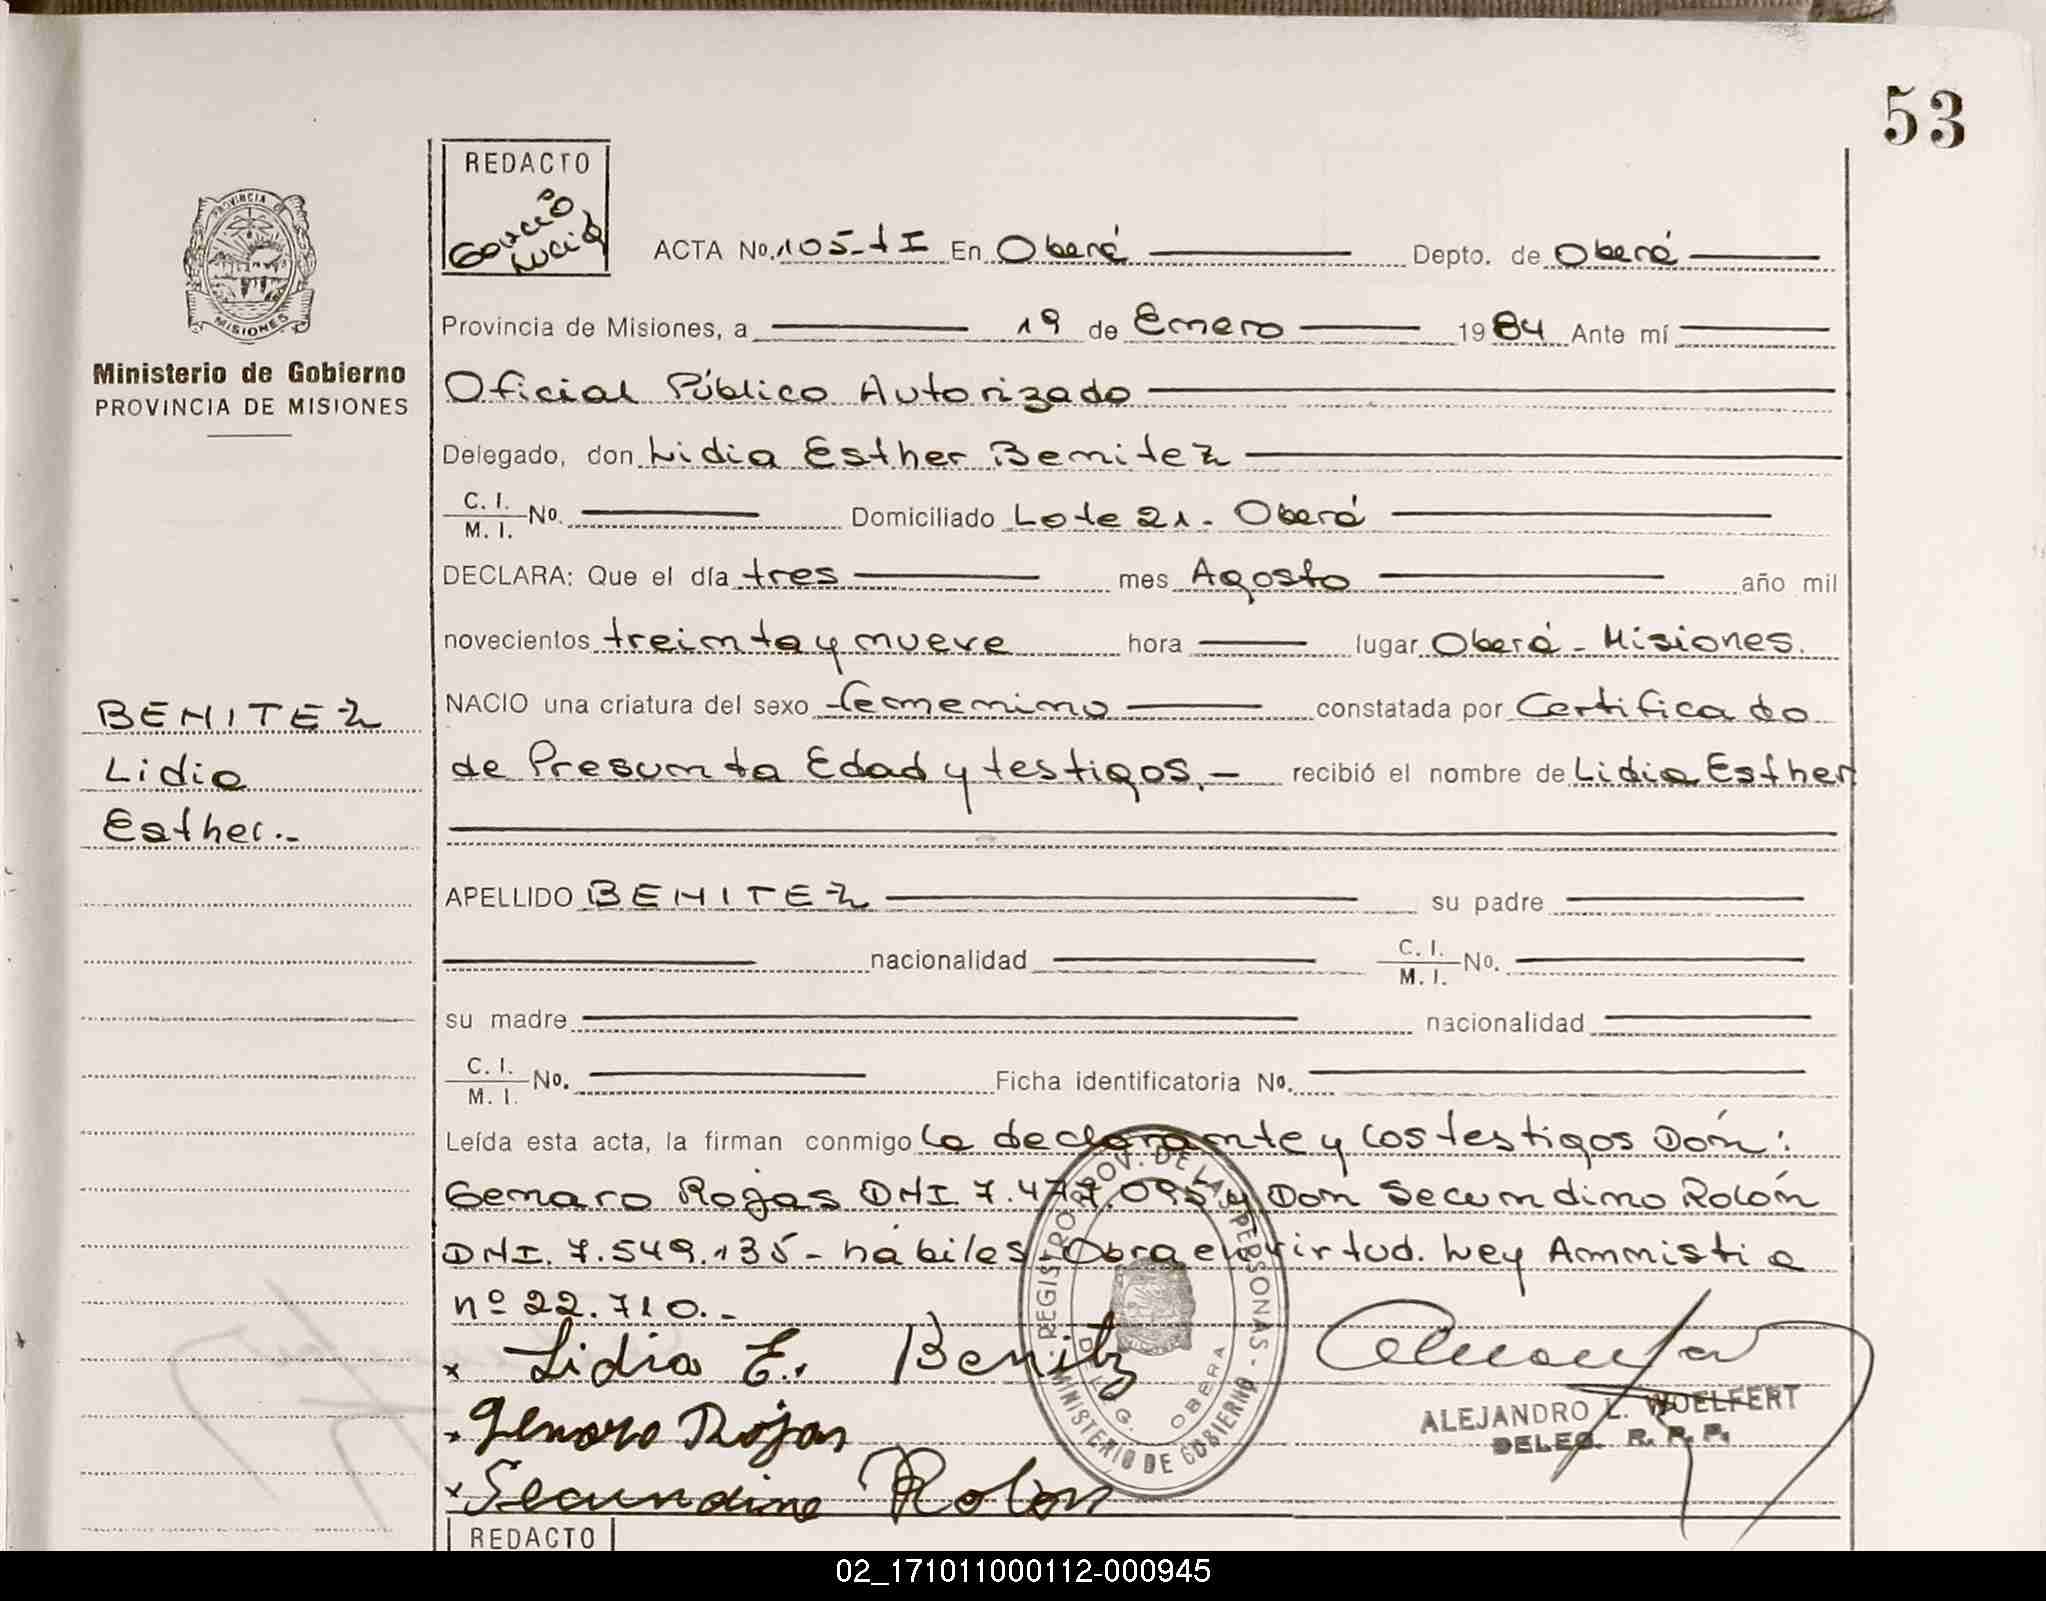 53
REDACTO
ACTA No. 105-tI En Oberá Depto. de Oberá
PROVINCIA DE
MISIONES
Provincia de Misiones, a 19 de Enero 1984 Ante mí
Ministerio de Gobierno
PROVINCIA DE MISIONES
Oficial Público Autorizado
Delegado, don Lidia Esther Benitez
C. I.
M. I. No. Domiciliado Lote 21 - Oberá
DECLARA: Que el día tres mes Agosto año mil
novecientos treinta y nueve hora lugar Oberá - Misiones.
NACIO una criatura del sexo femenino constatada por Certificado
de Presunta Edad y testigos.- recibió el nombre de Lidia Esther
BENITEZ
Lidia
Esther.-
APELLIDO BENITEZ su padre
nacionalidad C. I.
M. I. No.
su madre nacionalidad
C. I.
M. I. No. Ficha identificatoria No.
Leída esta acta, la firman conmigo la declarante y los testigos Don:
Genaro Rojas DNI 7.477.095 y Don Secundino Rolón
DNI. 7.549.135 - hábiles - Obra en virtud. Ley Amnistia
nº 22.710.-
x Lidia E. Benitz
x Genaro Rojas
x Secundino Rolon
REGISTRO PROV. DE LAS PERSONAS - MINISTERIO DE GOBIERNO
DELEG. OBERA
ALEJANDRO L. WOELFERT
DELEG. R. P. P.
REDACTO
02_171011000112-000945